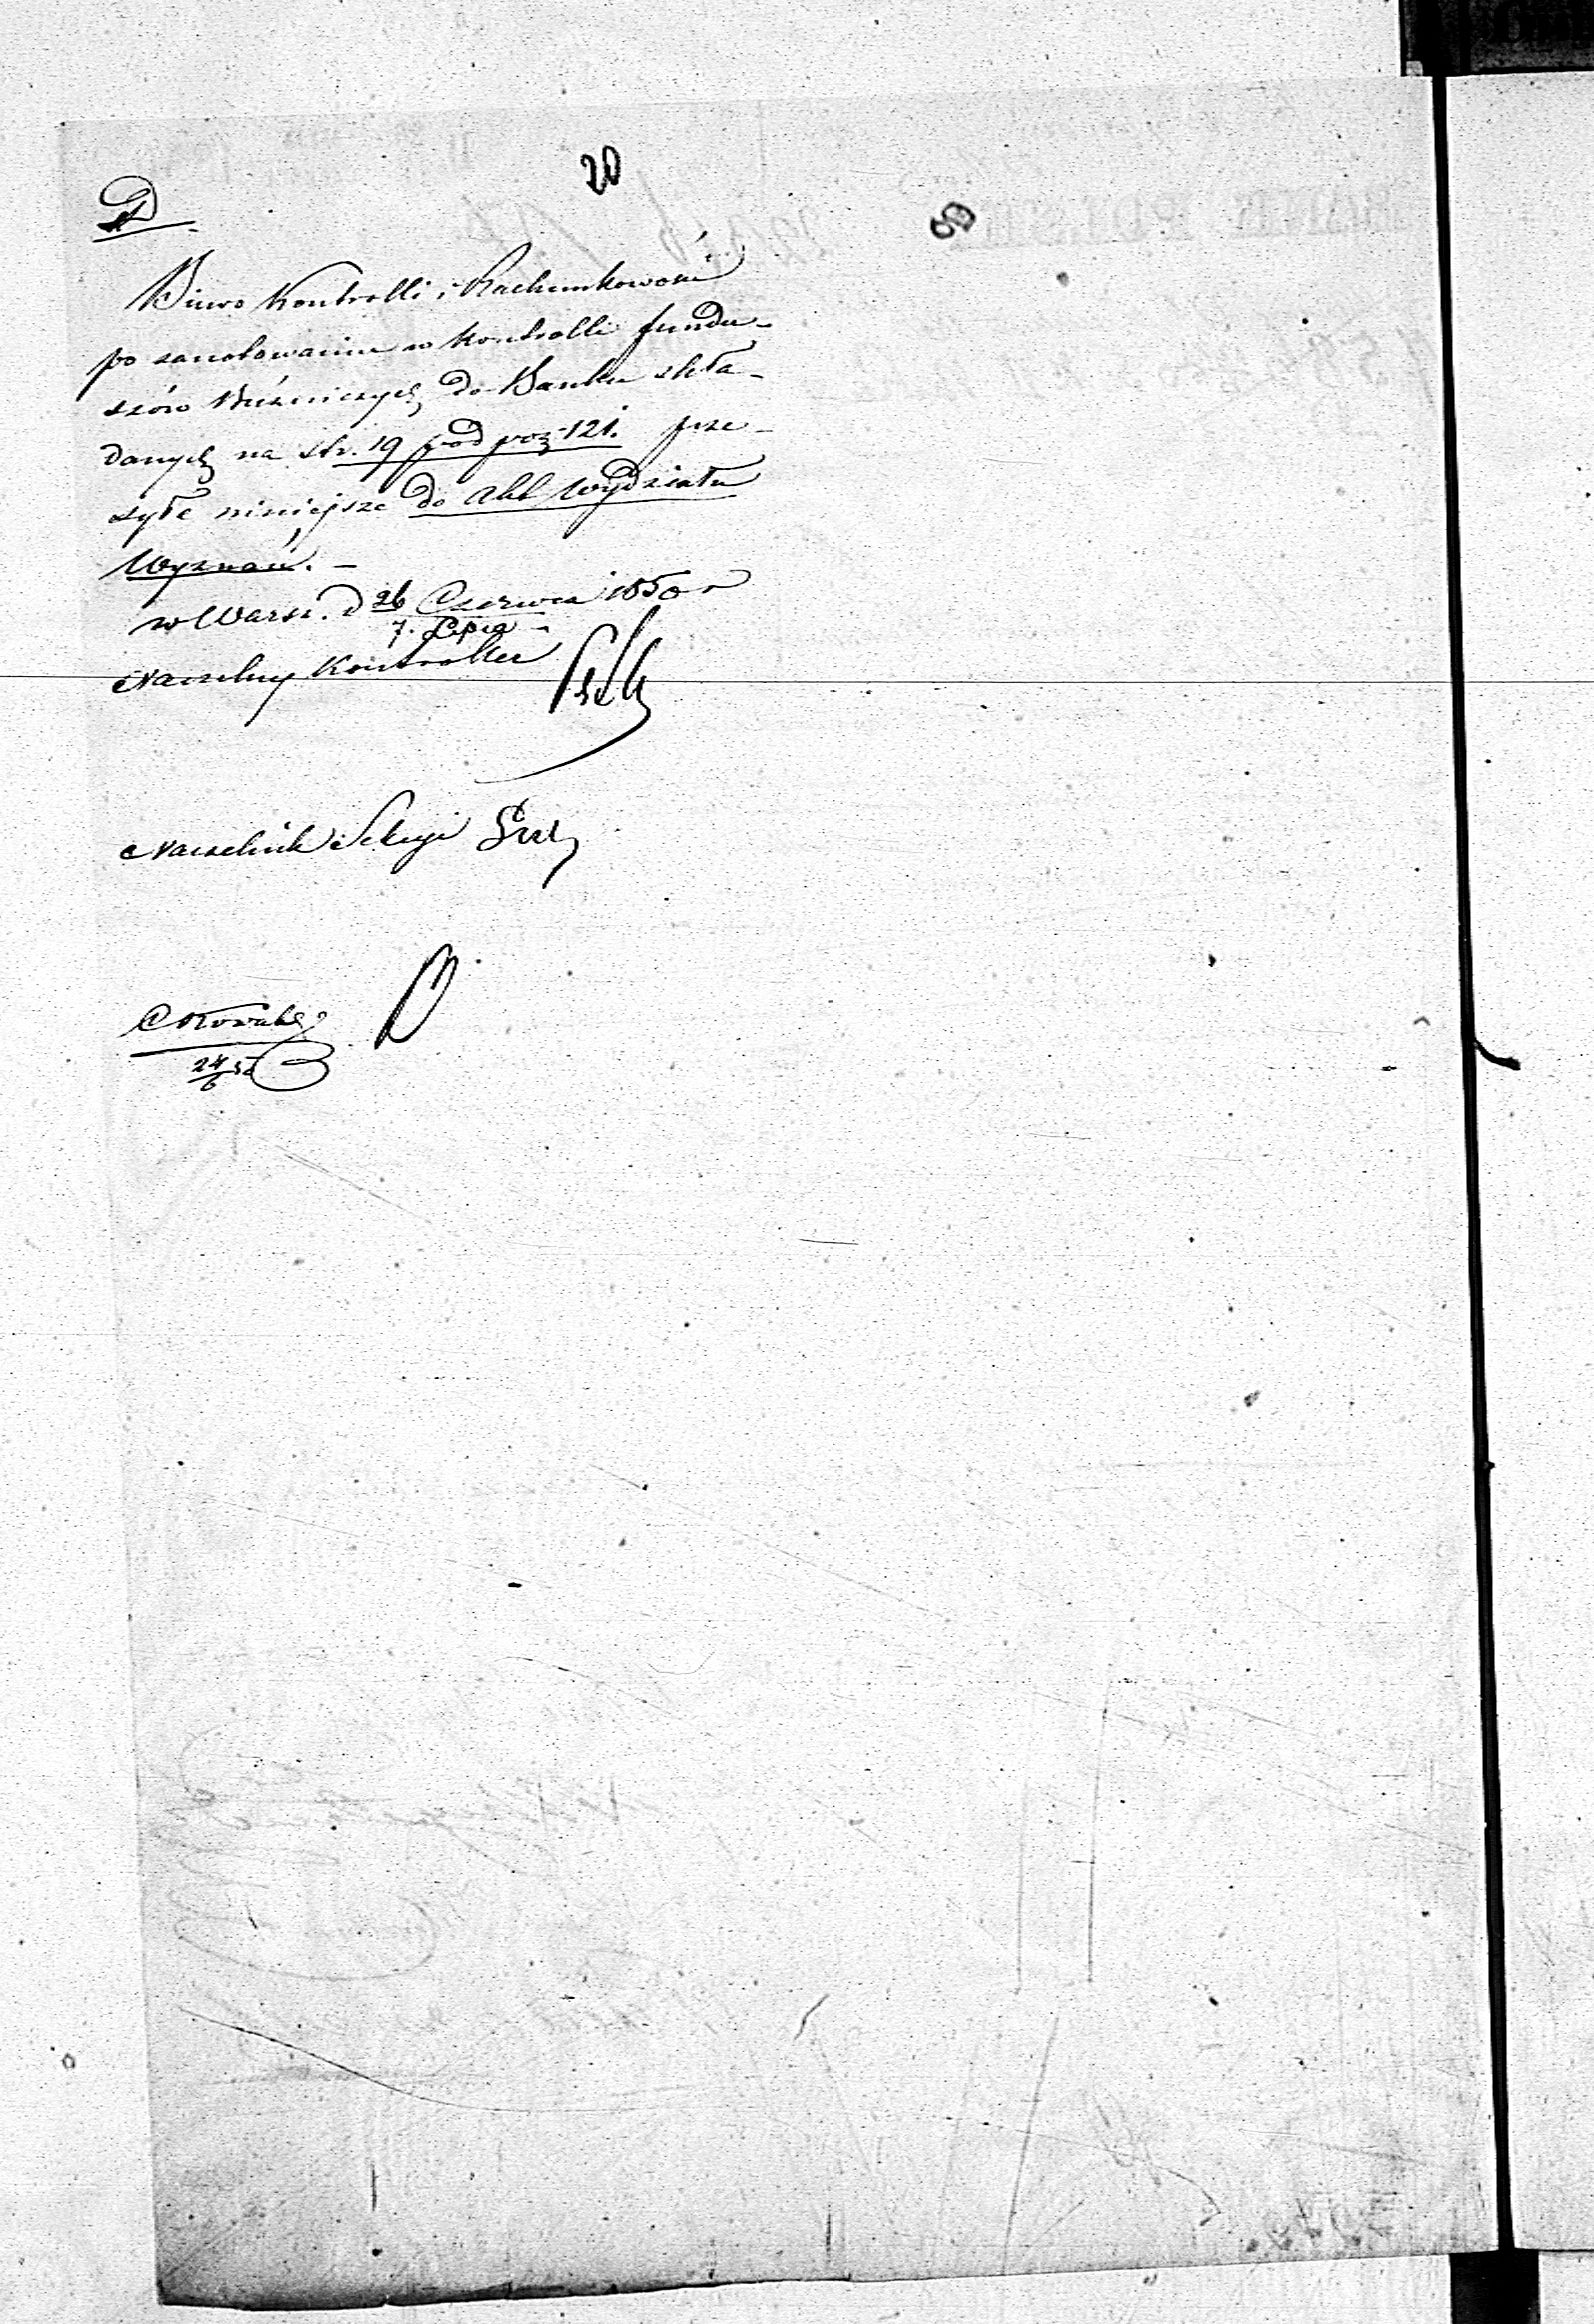 20
Biuro Kontrolli i Rachunkowości
po zanotowaniu w Kontrolli fundu-
szów Bóżniczych do Banku skła-
danych na str. 19 pod poz. 121. prze-
syła niniejsze do Akt Wydziału
Wyznań. -
w Warsz. d 26 Czerwca 1850 r
7. Lipca
Naczelny Kontroller
Naczelnik Sekcyi
24/6